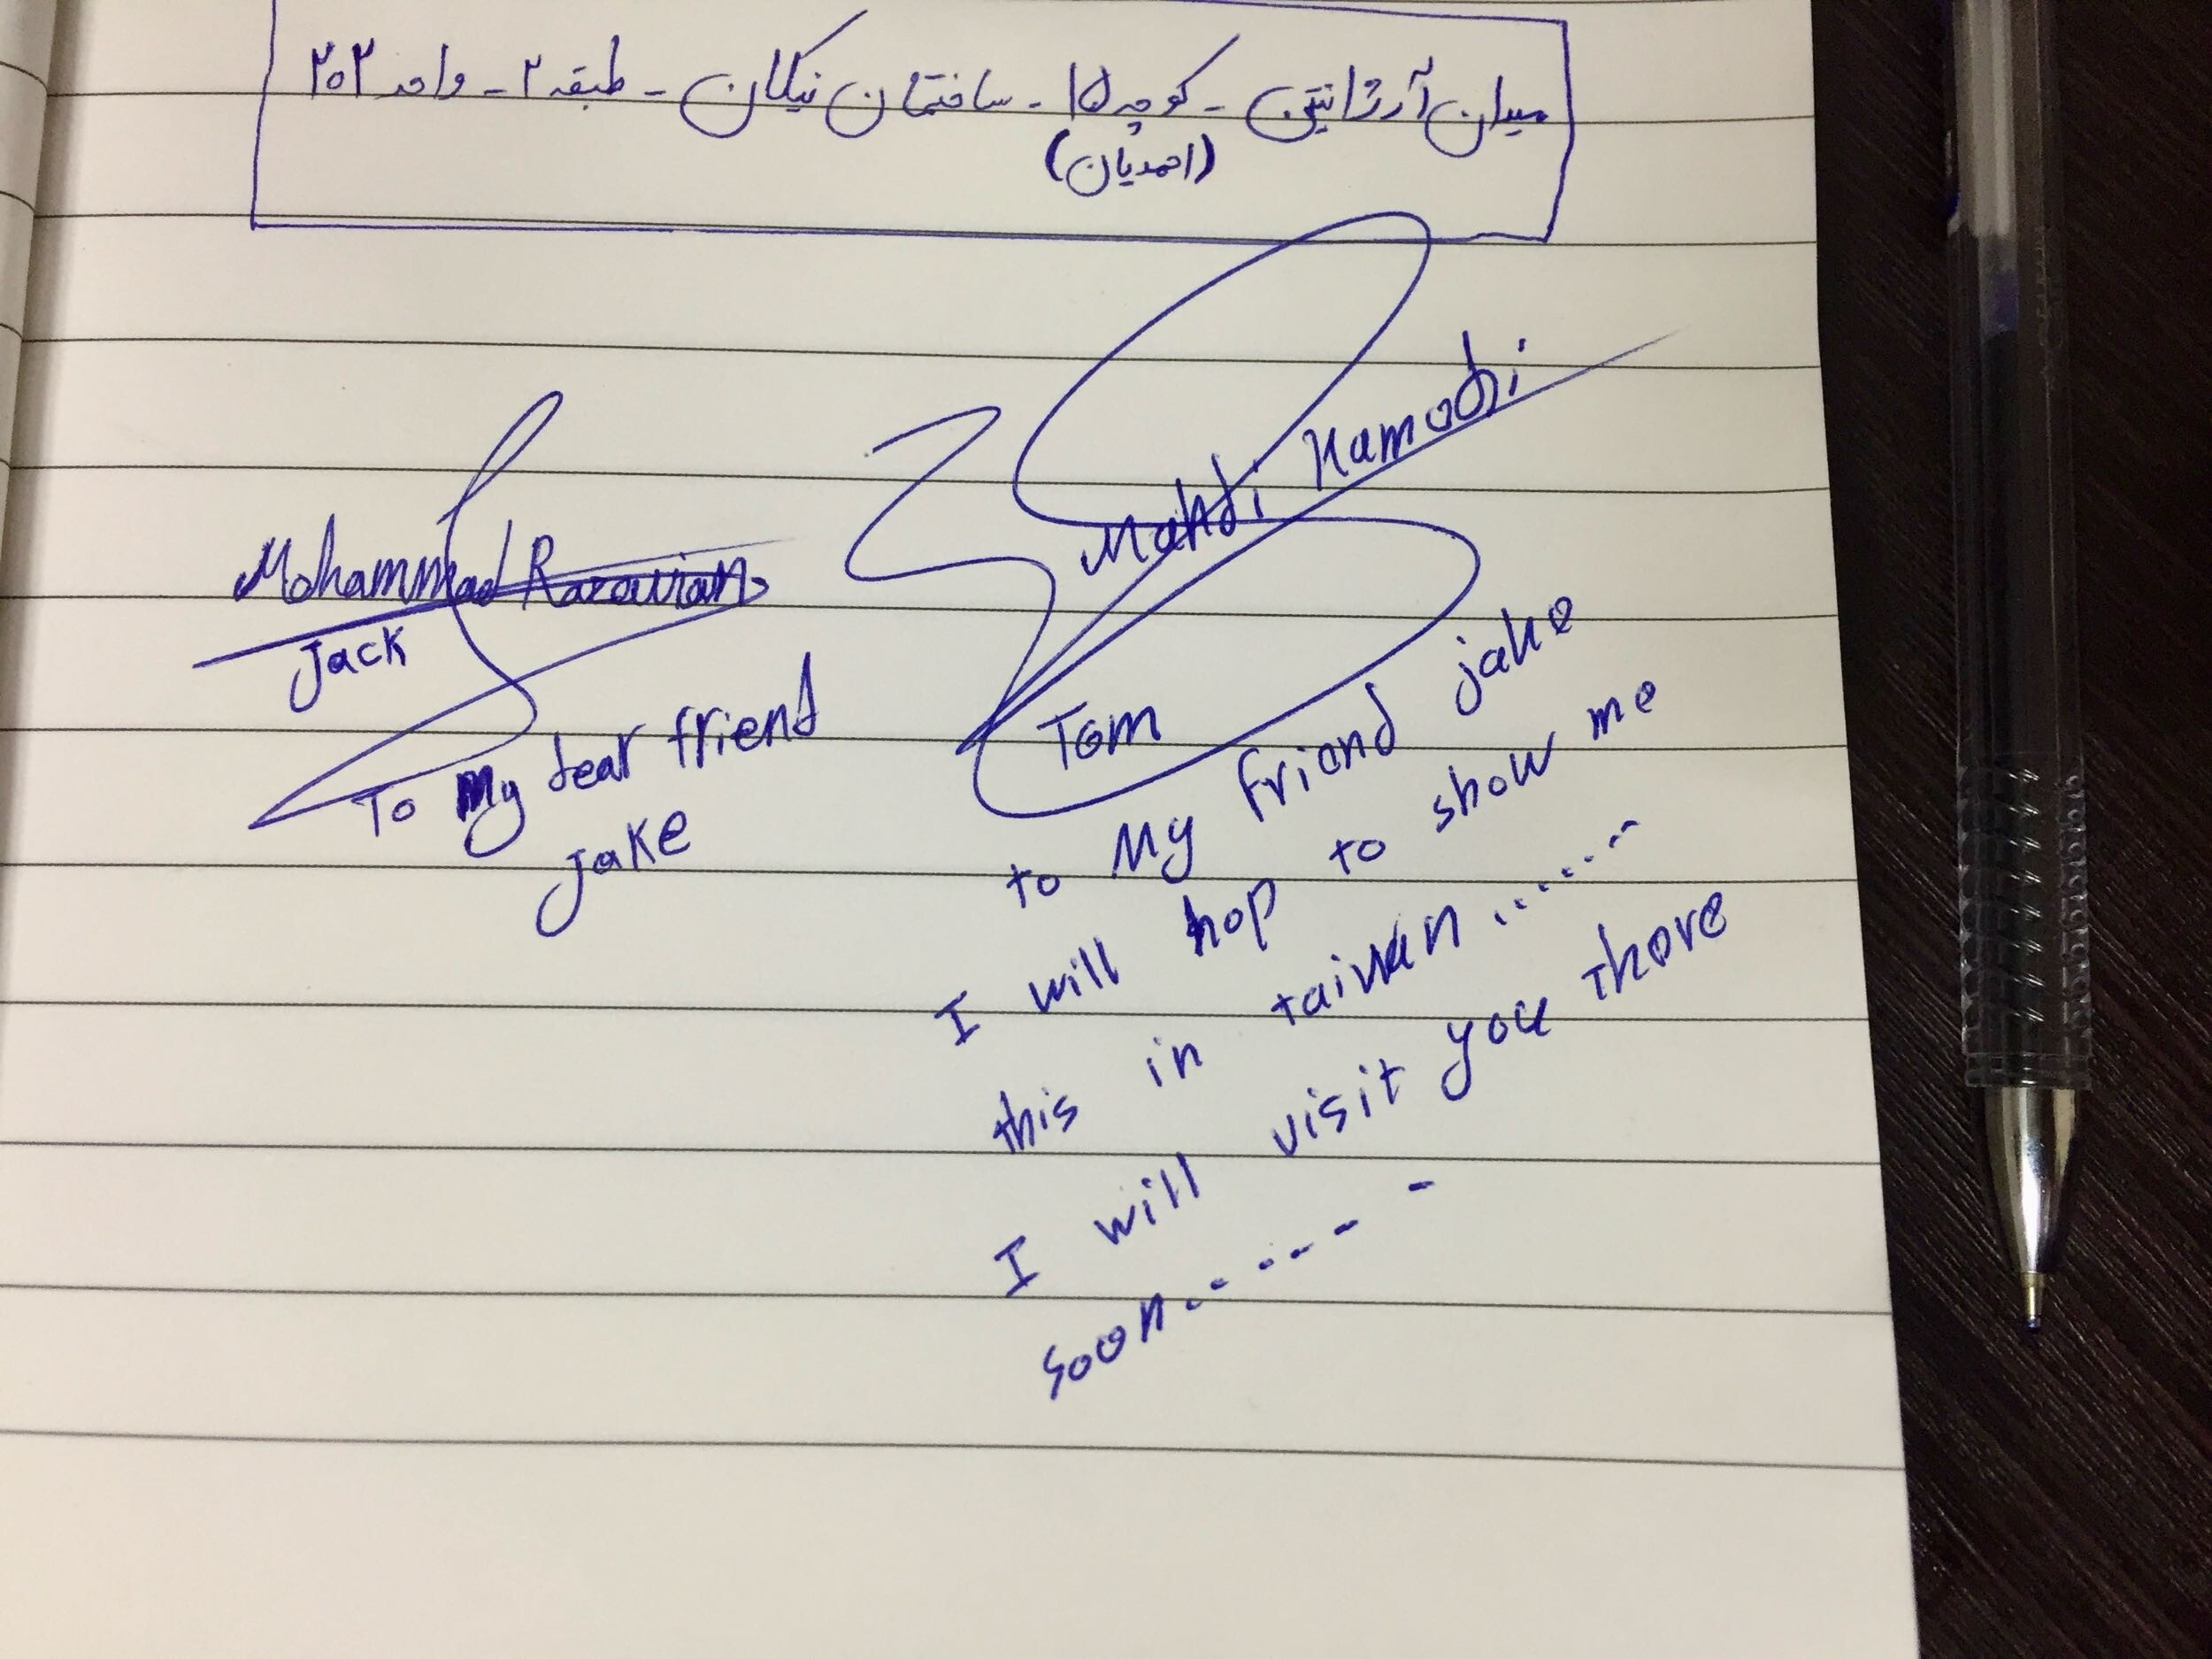 میدان آرژانتین - کوچه ۱۵ - ساختمان نیکان - طبقه ۲ - واحد ۲۰۲
(احمدیان)
Mohammad Razavian
Jack
To My dear friend
Jake
Mahdi Hamodi
Tom
to My friend jake
I will hop to show me
this in taiwan ......
I will visit you there
soon.......